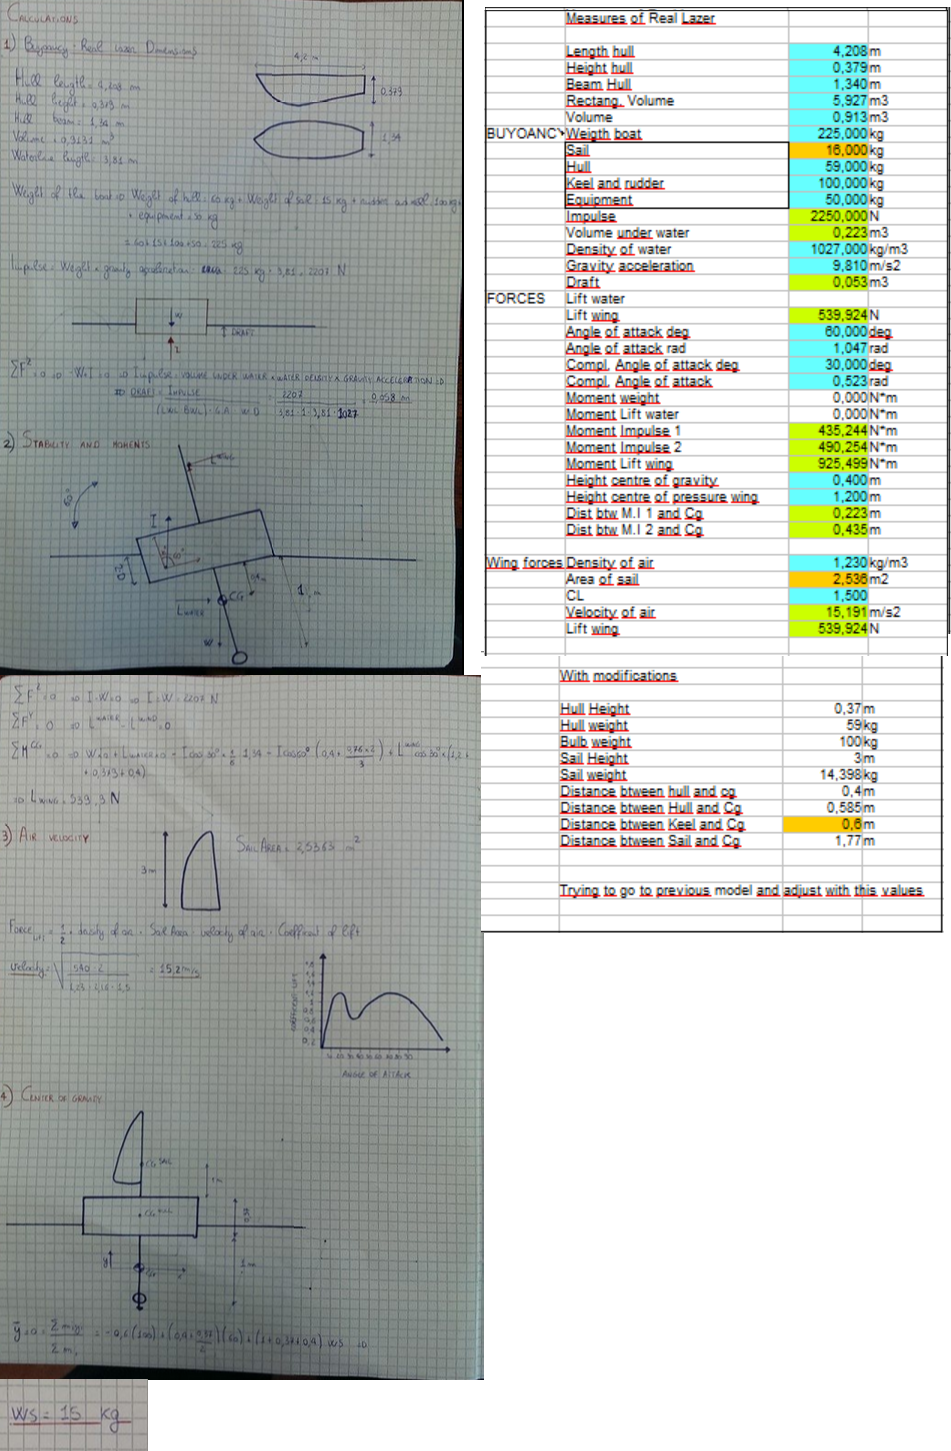 CALCULATIONS
1) Buoyancy: Real Laser Dimensions
4,2 m
Hull length: 4,208 m
0,373
Hull height: 0,373 m
Hull beam: 1,34 m
1,34
Volume: 0,9131 m³
Waterline length: 3,81 m
Weight of the boat => Weight of hull: 60 kg + Weight of sail 15 kg + rudder and keel 100 kg +
+ equipment = 50 kg
= 60+15+100+50 = 225 kg
Impulse = Weight × gravity acceleration = 225 kg · 9,81 = 2207 N
W
DRAFT
I
2) STABILITY AND MOMENTS
I
CG
L WATER
W
ΣF^Z = 0 => I-W=0 => I=W=2207 N
ΣF^Y = 0 => L^WATER - L^WIND = 0
+ 0,373 + 0,4)
=> L WING = 539,3 N
3) AIR VELOCITY
SAIL AREA = 2,5363 m²
3m
Force Lift = 1/2 · density of air · Sail Area · velocity of air · Coefficient of lift
Velocity = √ 540·2 = 15,2 m/s
COEFFICIENT LIFT
ANGLE OF ATTACK
4) CENTER OF GRAVITY
CG SAIL
CG HULL
1m
WS = 15 kg
Measures of Real Lazer
Length hull 4,208 m
Height hull 0,379 m
Beam Hull 1,340 m
Rectang. Volume 5,927 m3
Volume 0,913 m3
BUYOANCY Weigth boat 225,000 kg
Sail 16,000 kg
Hull 59,000 kg
Keel and rudder 100,000 kg
Equipment 50,000 kg
Impulse 2250,000 N
Volume under water 0,223 m3
Density of water 1027,000 kg/m3
Gravity acceleration 9,810 m/s2
Draft 0,053 m3
FORCES Lift water
Lift wing 539,924 N
Angle of attack deg 60,000 deg
Angle of attack rad 1,047 rad
Compl. Angle of attack deg 30,000 deg
Compl. Angle of attack 0,523 rad
Moment weight 0,000 N*m
Moment Lift water 0,000 N*m
Moment Impulse 1 435,244 N*m
Moment Impulse 2 490,254 N*m
Moment Lift wing 925,499 N*m
Height centre of gravity 0,400 m
Height centre of pressure wing 1,200 m
Dist btw M.I 1 and Cg 0,223 m
Dist btw M.I 2 and Cg 0,435 m
Wing forces Density of air 1,230 kg/m3
Area of sail 2,536 m2
CL 1,500
Velocity of air 15,191 m/s2
Lift wing 539,924 N
With modifications
Hull Height 0,37 m
Hull weight 59 kg
Bulb weight 100 kg
Sail Height 3 m
Sail weight 14,398 kg
Distance btween hull and cg 0,4 m
Distance btween Hull and Cg 0,585 m
Distance btween Keel and Cg 0,6 m
Distance btween Sail and Cg 1,77 m
Trying to go to previous model and adjust with this values